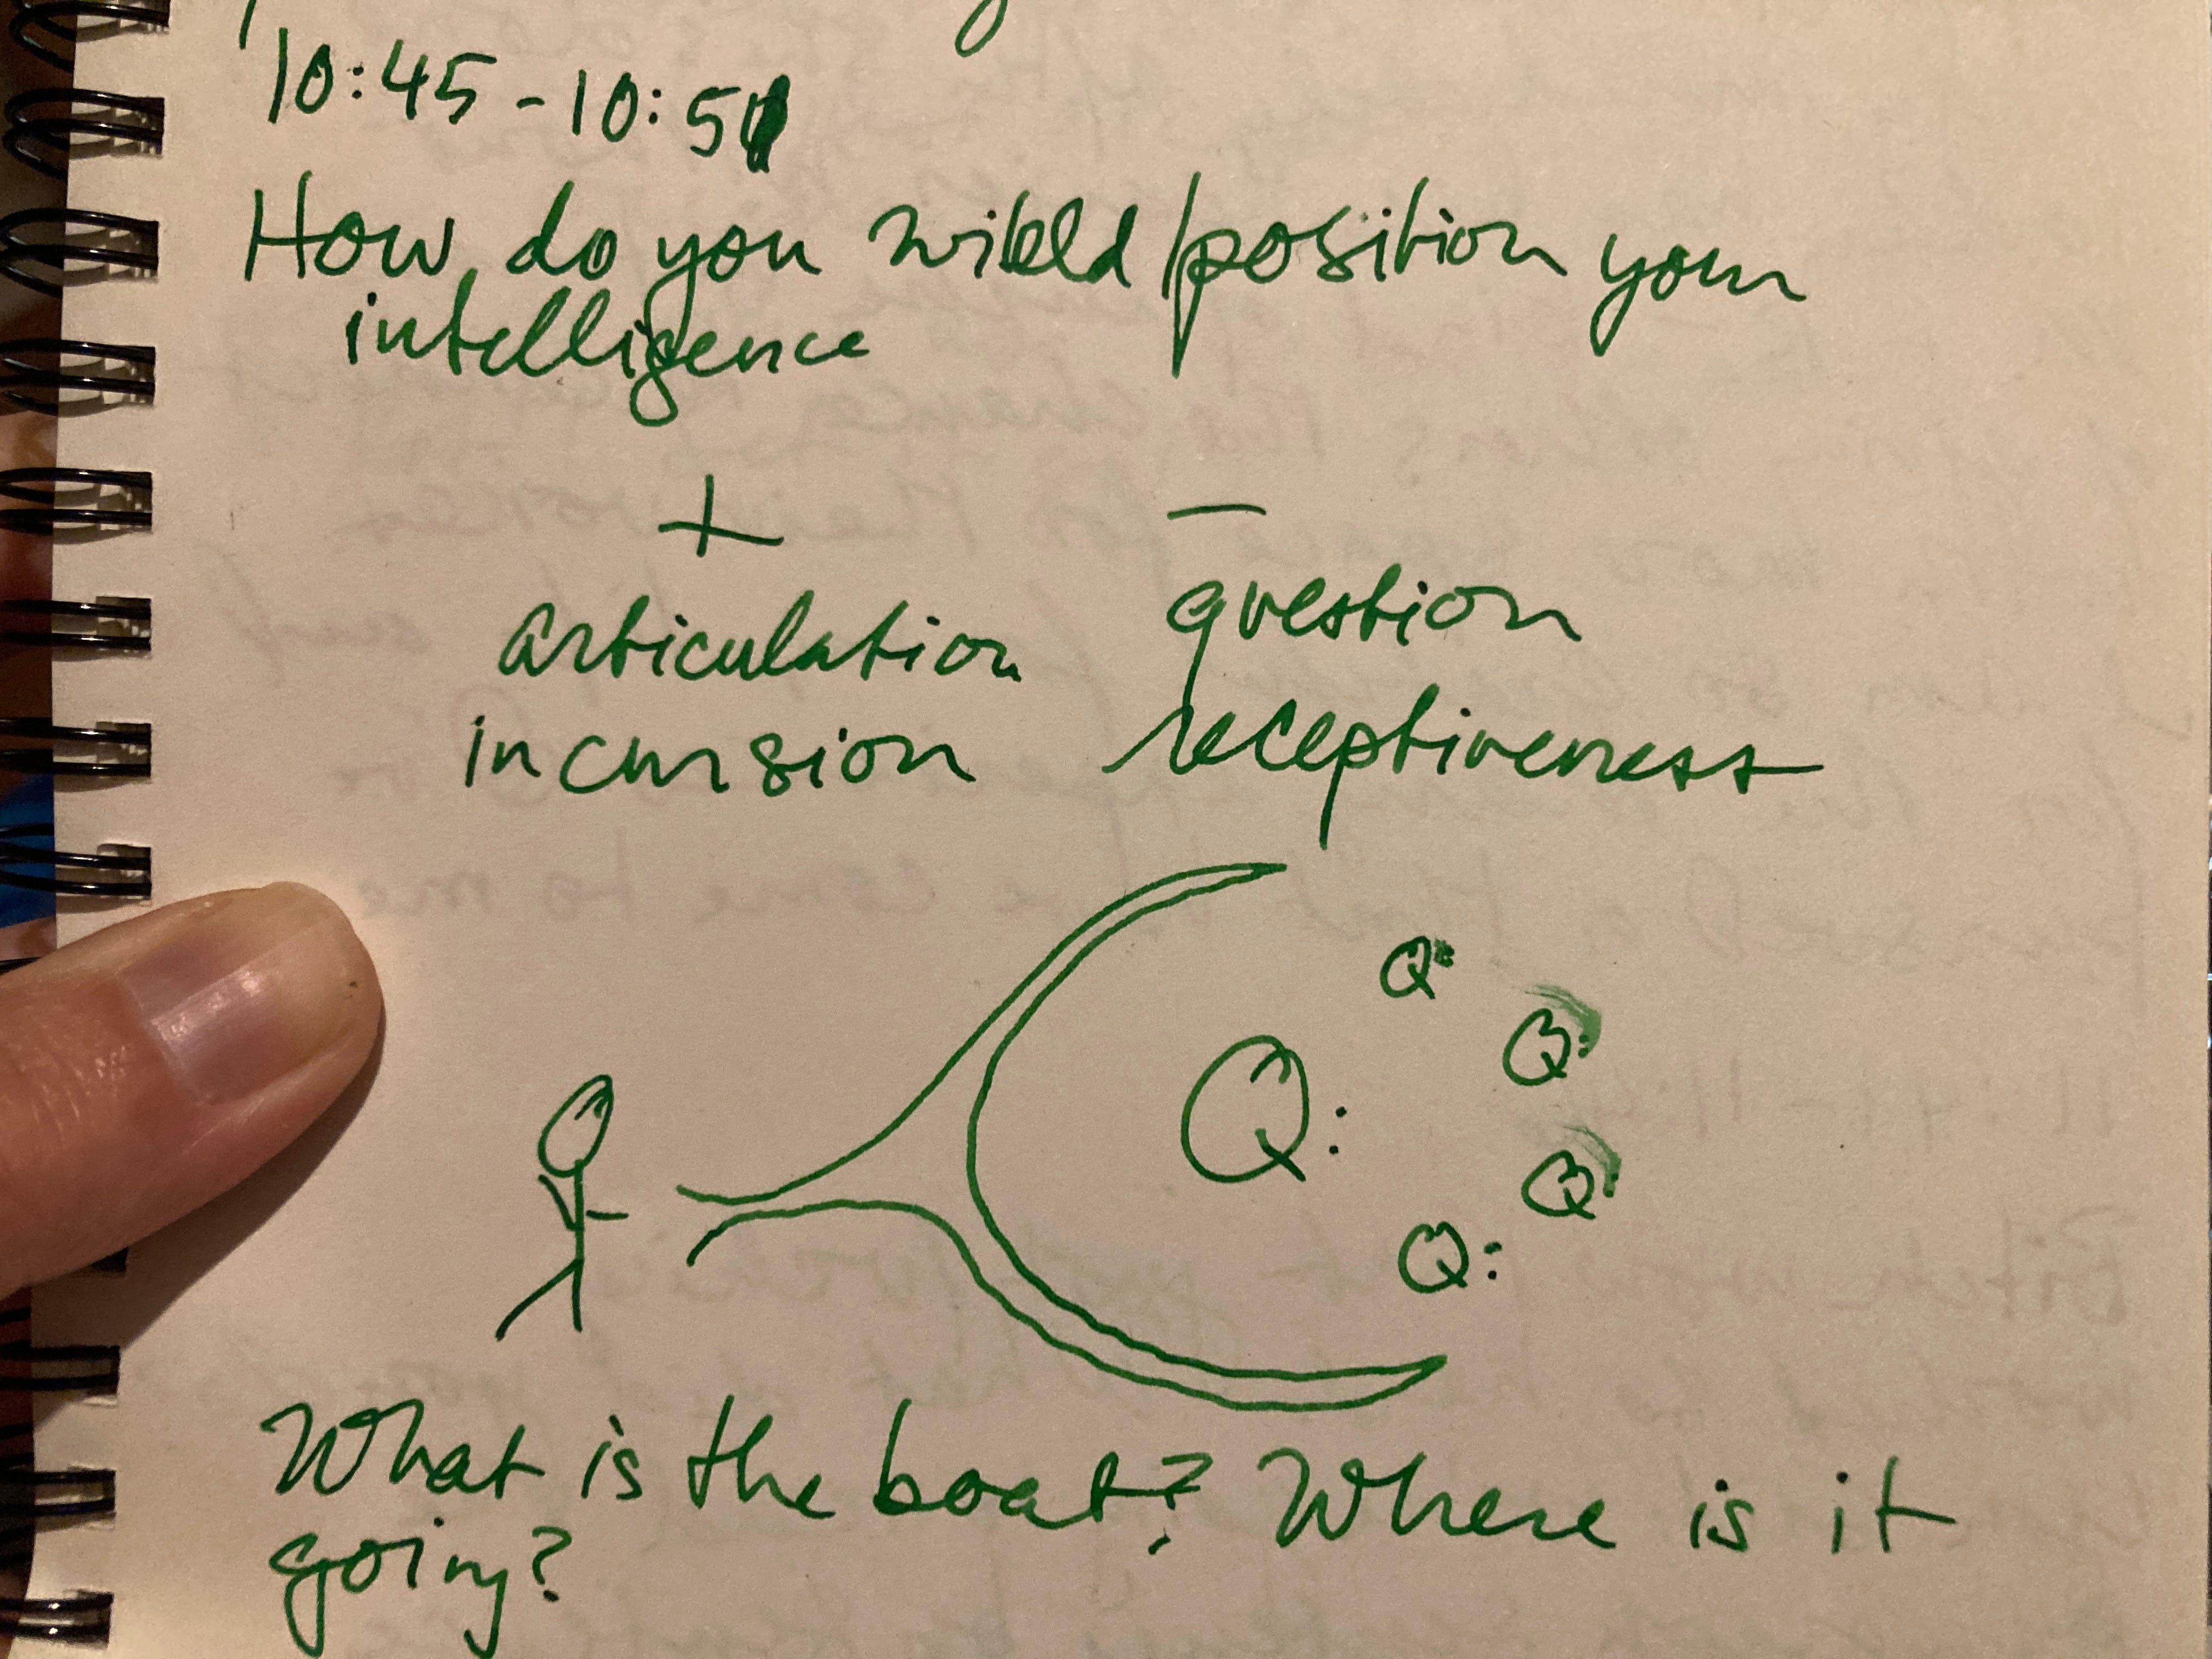 10:45 - 10:51
How do you wield/position your
intelligence
+ -
articulation question
incursion receptiveness
Q:
Q:
Q: Q:
Q:
What is the boat? Where is it
going?